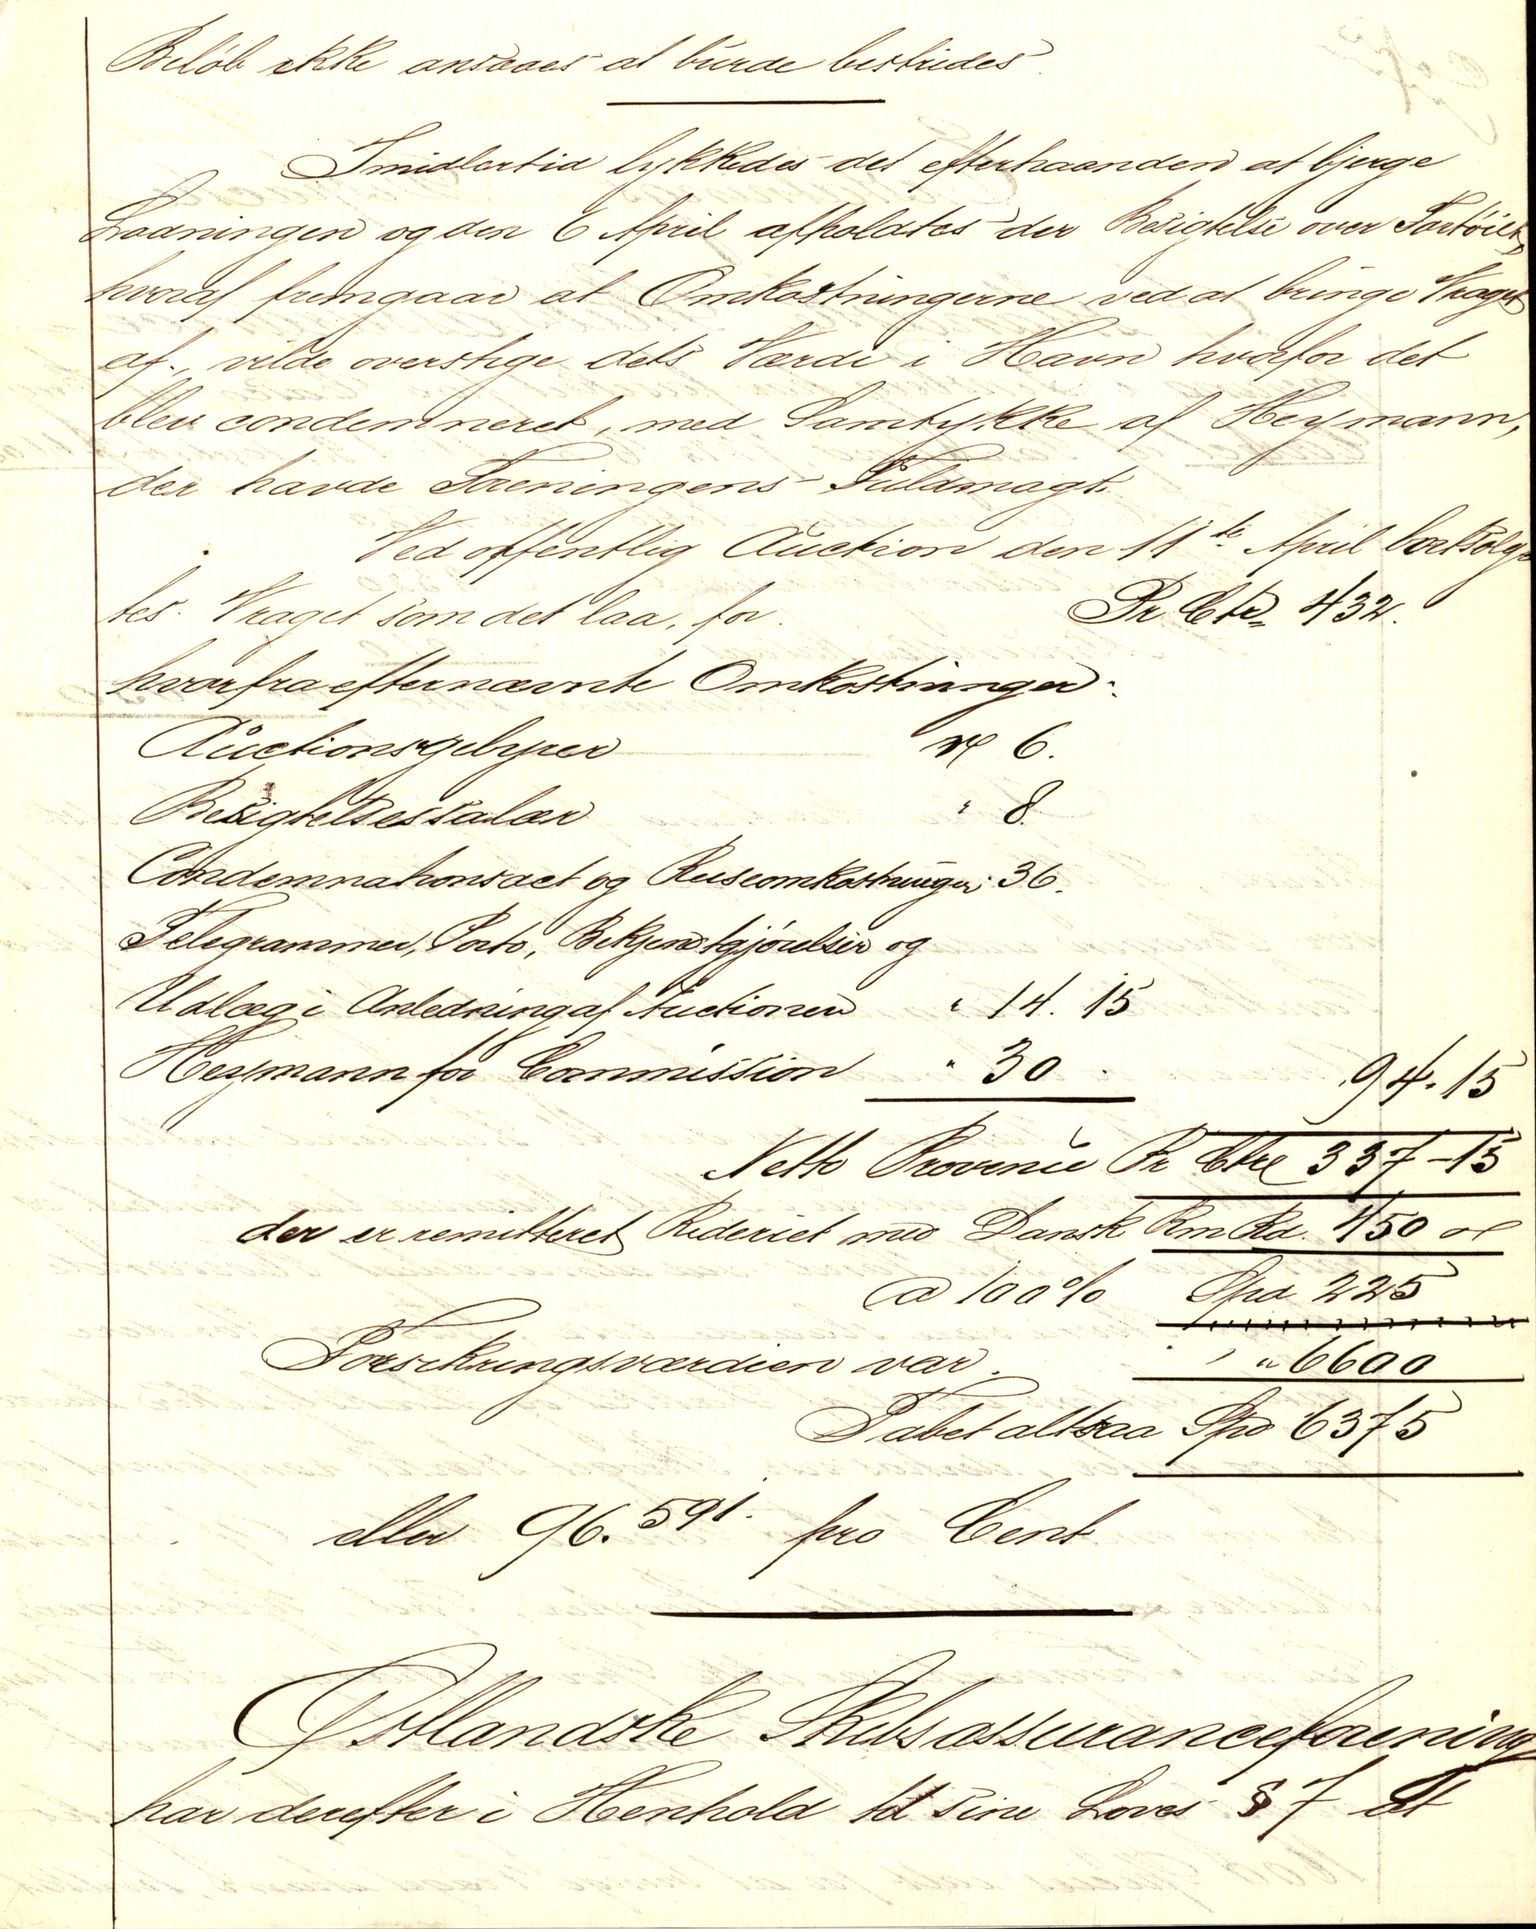 Beløb ikke ansaaes at burde bestrides.
Imidlertid lykkedes det efterhaanden at bjerge
Ladningen og den 6 April afholdtes der Besigtelse over Fartøiet,
hvoraf fremgaar at Omkostningerne ved at bringe Vraget
af, vilde overstige dets Værdi i Havn hvorfor det
blev condemneret, med Samtykke af Heymann,
der havde Foreningens Fuldmagt.
Ved offentlig Auction den 11te April bortsolg-
tes Vraget som det laa, for Pr Ct 432.
hvorfra efternævnte Omkostninger.
Auctionsgebyrer 6.
Besigtelsessalær " 8
Condemnationsact og Reiseomkostninger 36.
Telegrammer, Porto, Bekjendtgjørelser og
Udlæg i Anledning af Auctionen " 14. 15
Heymann for Commission " 30 94.15
Netto Provenu Pr 337-15
der er remitteret Rederiet med Dansk Rm Rd. 450
@ 100% Spd 225
Forsikringsværdien var. " 6600
Tabet altsaa Spd 6375
eller 96.591. pro Cent
Østlandske Skibsassuranceforening
har derefter i Henhold til sine Loves § 7 at